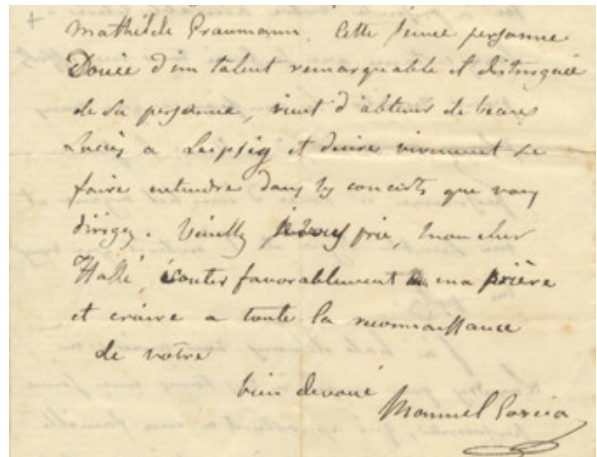 Mathilde Graumann. Cette jeune personne
Douée d'un talent remarquable et distinguée
de sa personne, vient d'obtenir de beaux
succès a Leipzig et désire vivement se
faire entendre dans les concerts que vous
dirigez. Veuillez je vous prie, mon cher
Hallé, écouter favorablement ma prière
et croire a toute la reconnaissance
de votre
bien devoué
Manuel Garcia